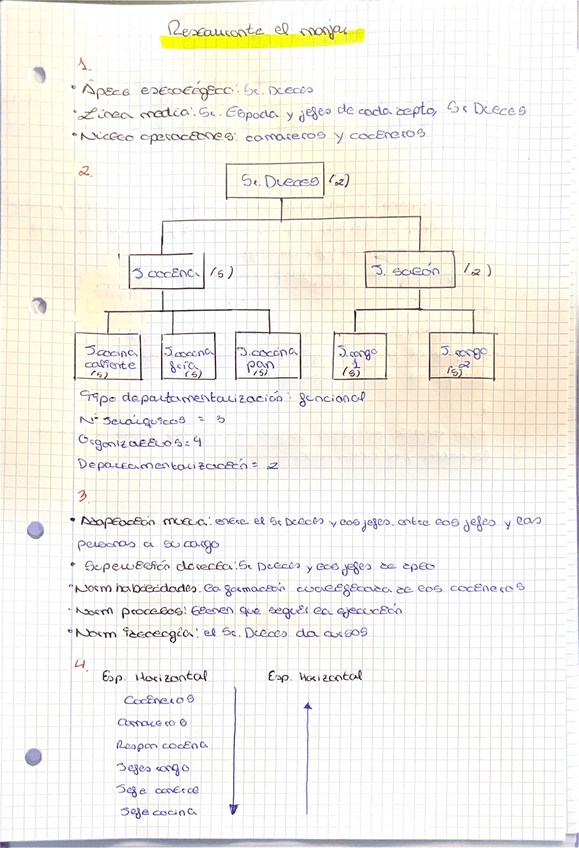 Restaurante el manjar
1.
• Ápece estratégico: Sr. Dieces
• Línea media: Sr. Espada y jefes de cada depto, Sr Dieces
• Núcleo operaciones: camareros y cocineros
2.
Sr. Dieces (2)
J. cocina (5) J. salón (2)
J. cocina caliente (5) J. cocina fría (5) J. cocina pan (5) J. rango 1 (5) J. rango 2 (5)
Tipo departamentalización: funcional
Nº Jerárquicos = 3
Organizativos = 4
Departamentalización = 2
3
• Adaptación mutua: entre el Sr Dieces y los jefes, entre los jefes y las
personas a su cargo
• Supervisión directa: Sr Dieces y los jefes de dpto
• Norm habilidades. la formación cualificada de los cocineros
• Norm procesos: tienen que seguir la ejecución
• Norm : el Sr. Dieces da cursos
4.
Esp. Horizontal Esp. Horizontal
Cocineros
Camareros
Respon cocina
Jefes rango
Jefe
Jefe cocina